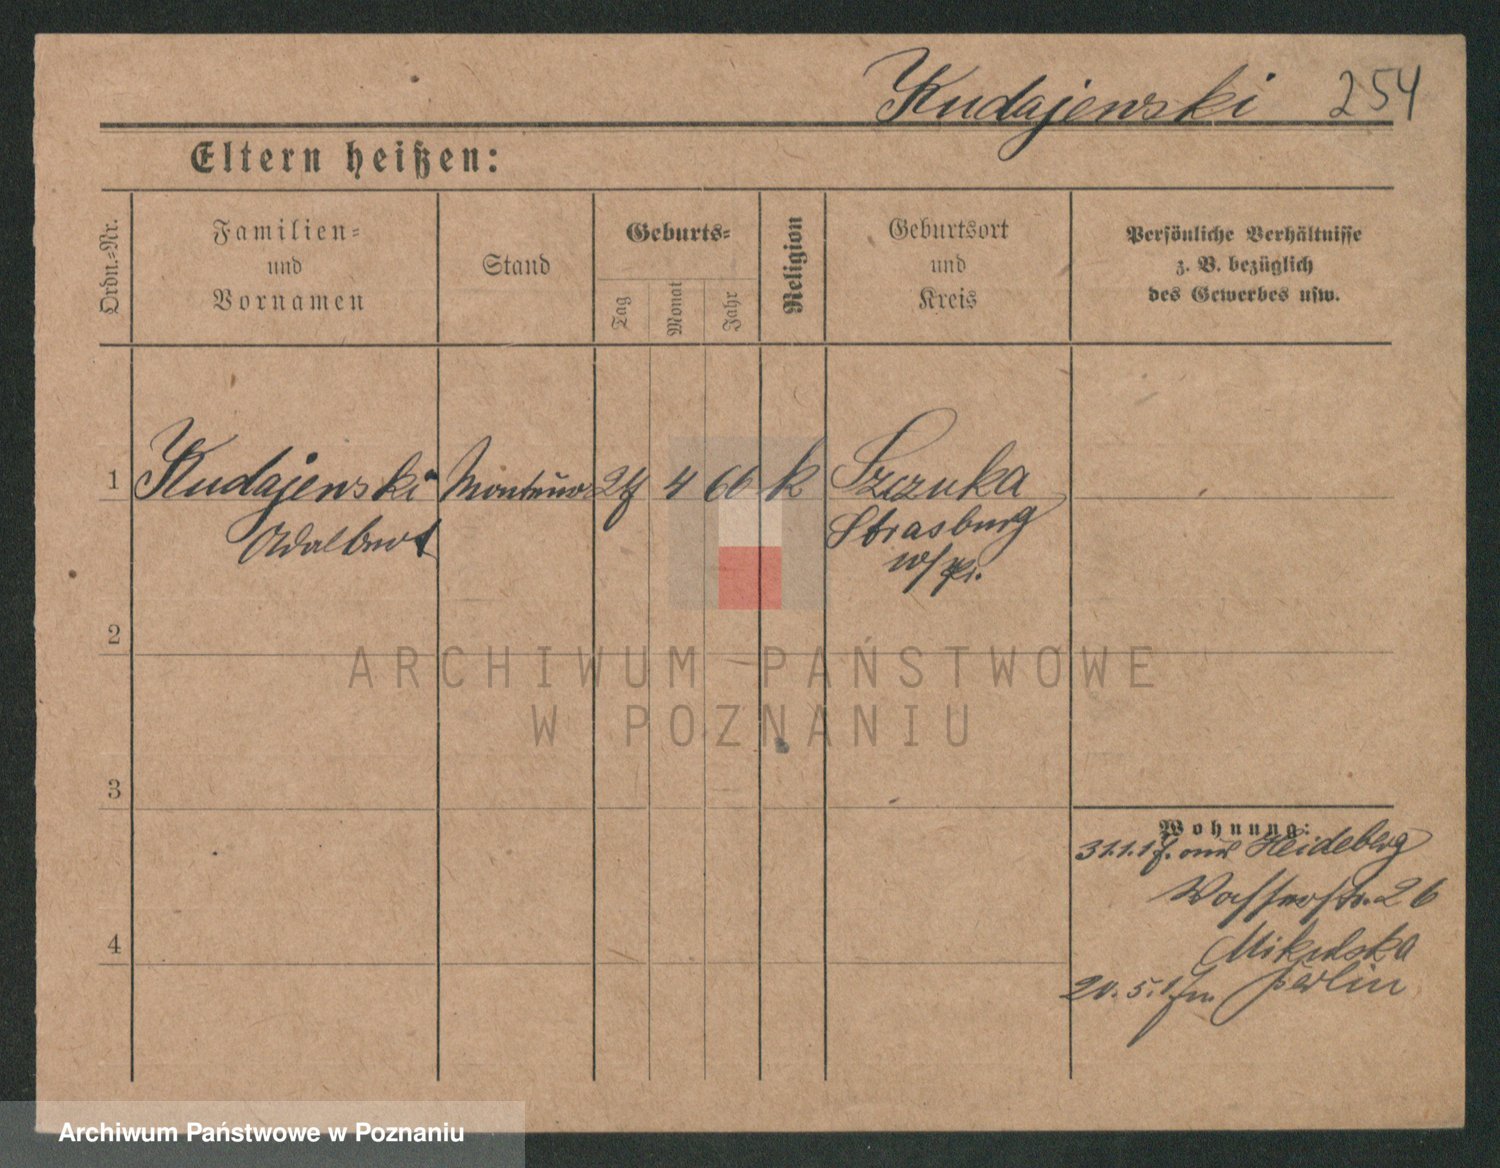 Kudajewski 254
Eltern heißen:
Ordn.-Nr.
Familien-
und
Vornamen
Stand
Geburts-
Tag
Monat
Jahr
Religion
Geburtsort
und
Kreis
Persönliche Verhältnisse
z. B. bezüglich
des Gewerbes usw.
1 Kudajewski Monteur 4 66 k Szczuka
Adalbert Strasburg
w/pr.
2
3
4
Wohnung:
31.1.17. aus Heideberg
Wasserstr. 26
Mikulska
20.5.17 n. Berlin
ARCHIWUM PAŃSTWOWE
W POZNANIU
Archiwum Państwowe w Poznaniu